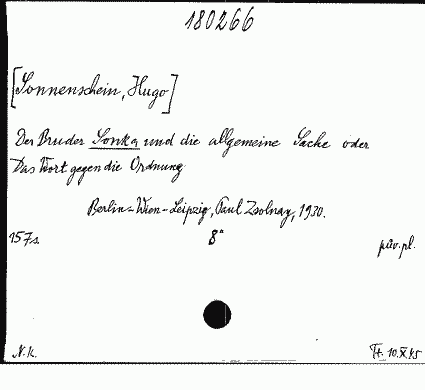 180266
[Sonnenschein, Hugo]
Der Bruder Sonka und die allgemeine Sache oder
Das Wort gegen die Ordnung
Berlin-Wien-Leipzig, Paul Zsolnay, 1930.
157s. 8° pův.pl.
N.k. 10.X.45